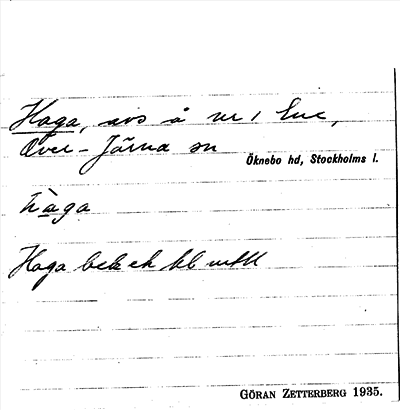 Haga, avs å nr 1 Ene,
Över-Järna sn
Öknebo hd, Stockholms l.
hàga
Haga
GÖRAN ZETTERBERG 1935.